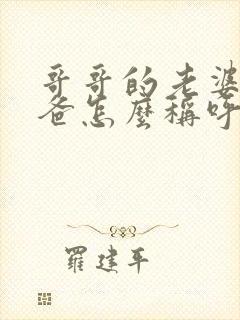 哥哥的老婆
爸怎麼稱呼
羅建平